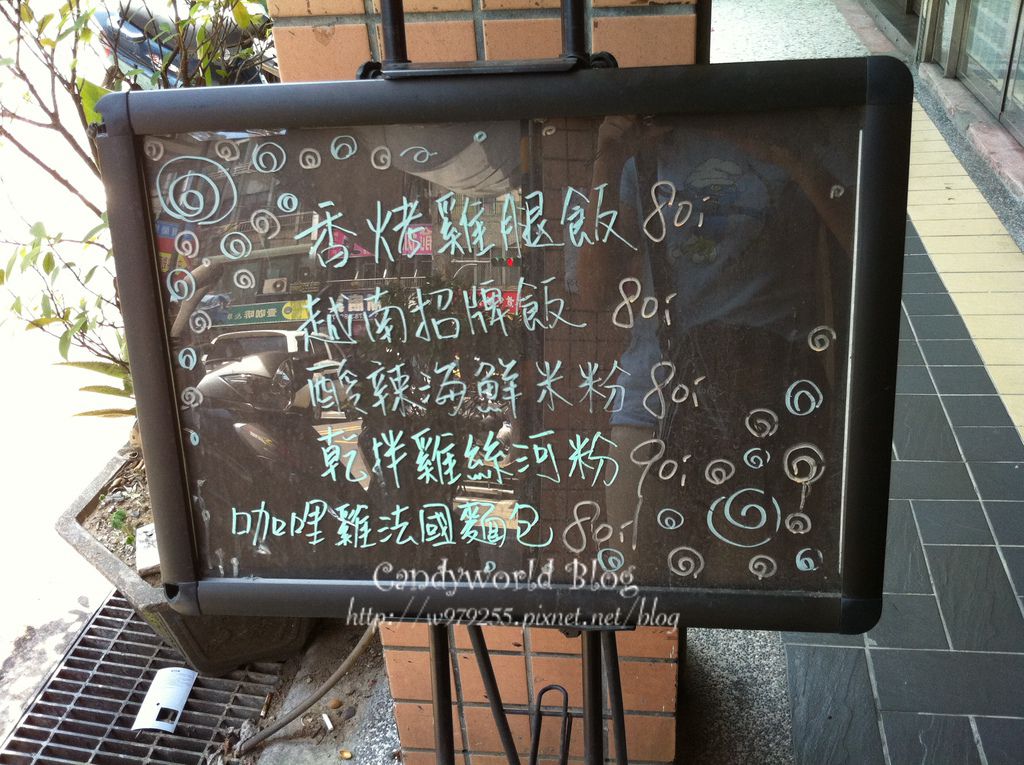 香烤雞腿飯 80元
越南招牌飯 80元
酸辣海鮮米粉 80元
乾拌雞絲河粉 90元
咖哩雞法國麵包 80元
Candyworld Blog
http://w979255.pixnet.net/blog